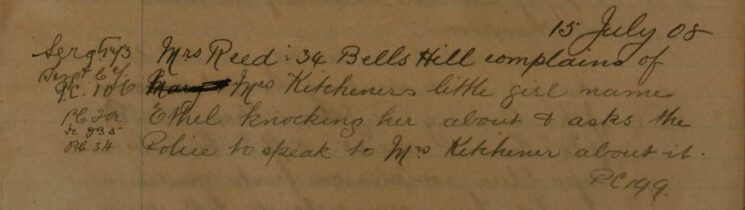 15 July 08
Sergt 43 Mrs Reed: 34 Bells Hill complains of
P.C. 106 Mrs Kitcheners little girl name
Ethel knocking her about & asks the
P.C. 34 Police to speak to Mrs Kitchener about it.
PC 199.